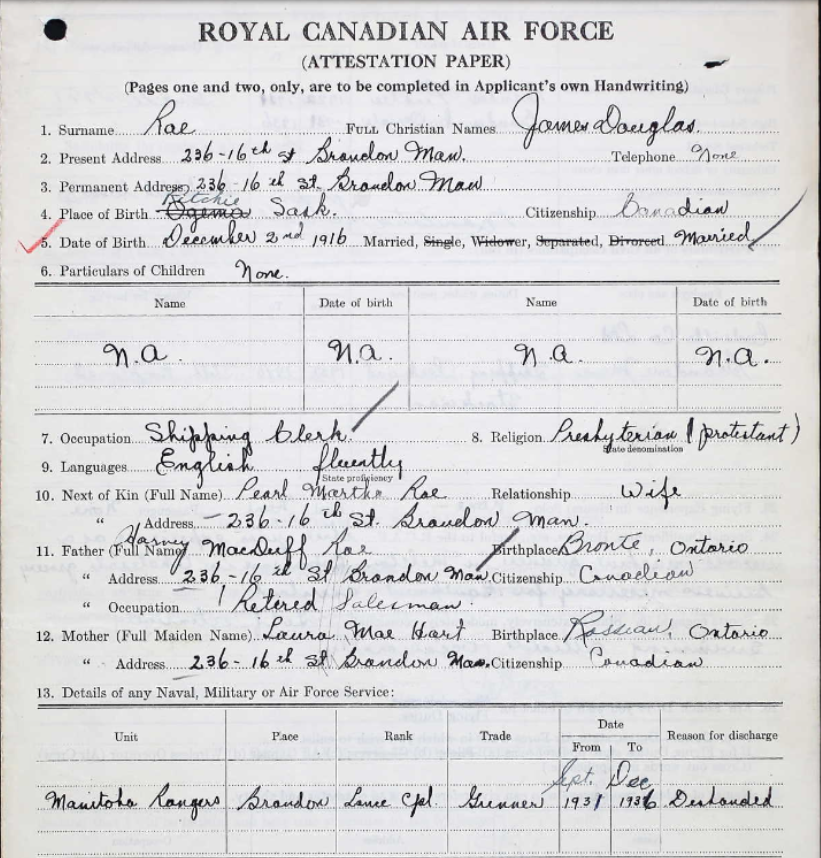 ROYAL CANADIAN AIR FORCE
(ATTESTATION PAPER)
(Pages one and two, only, are to be completed in Applicant's own Handwriting)
1. Surname Rae FULL Christian Names James Douglas.
2. Present Address 236-16th St Brandon Man. Telephone None
3. Permanent Address 236-16th St. Brandon Man
Ritchie
4. Place of Birth Ogema Sask. Citizenship Canadian
5. Date of Birth December 2nd 1916 Married, Single, Widower, Separated, Divorced Married
6. Particulars of Children None.
Name Date of birth Name Date of birth
N.A. N.A. N.A. N.A.
7. Occupation Shipping Clerk 8. Religion Presbyterian (protestant)
State denomination
9. Languages English fluently
State proficiency
10. Next of Kin (Full Name) Pearl Martha Rae Relationship Wife
" Address 236-16th St. Brandon Man.
Harvey
11. Father (Full Name) MacDuff Rae Birthplace Bronte, Ontario
" Address 236-16th St Brandon Man Citizenship Canadian
" Occupation Retered Salesman.
12. Mother (Full Maiden Name) Laura Mae Hart Birthplace Rosseau, Ontario
" Address 236-16th St Brandon Man. Citizenship Canadian
13. Details of any Naval, Military or Air Force Service:
Unit Place Rank Trade Date Reason for discharge
From To
Sept. Dec
Manitoba Rangers Brandon Lance Cpl. Grunner 1931 1936 Desbanded